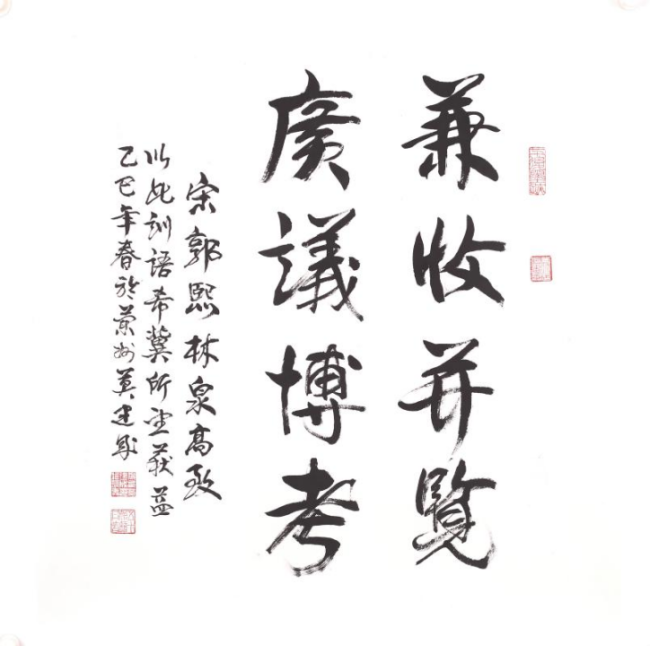 兼收并覽
廣議博考
宋郭熙林泉高致
以此訓語希冀所望获益
乙巳年春於蘭州莫建成